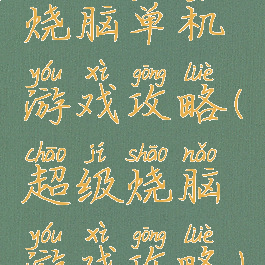 烧脑单机
yóu xì gōng lüè
游戏攻略(
chāo jí shāo nǎo
超级烧脑
yóu xì gōng lüè
游戏攻略)